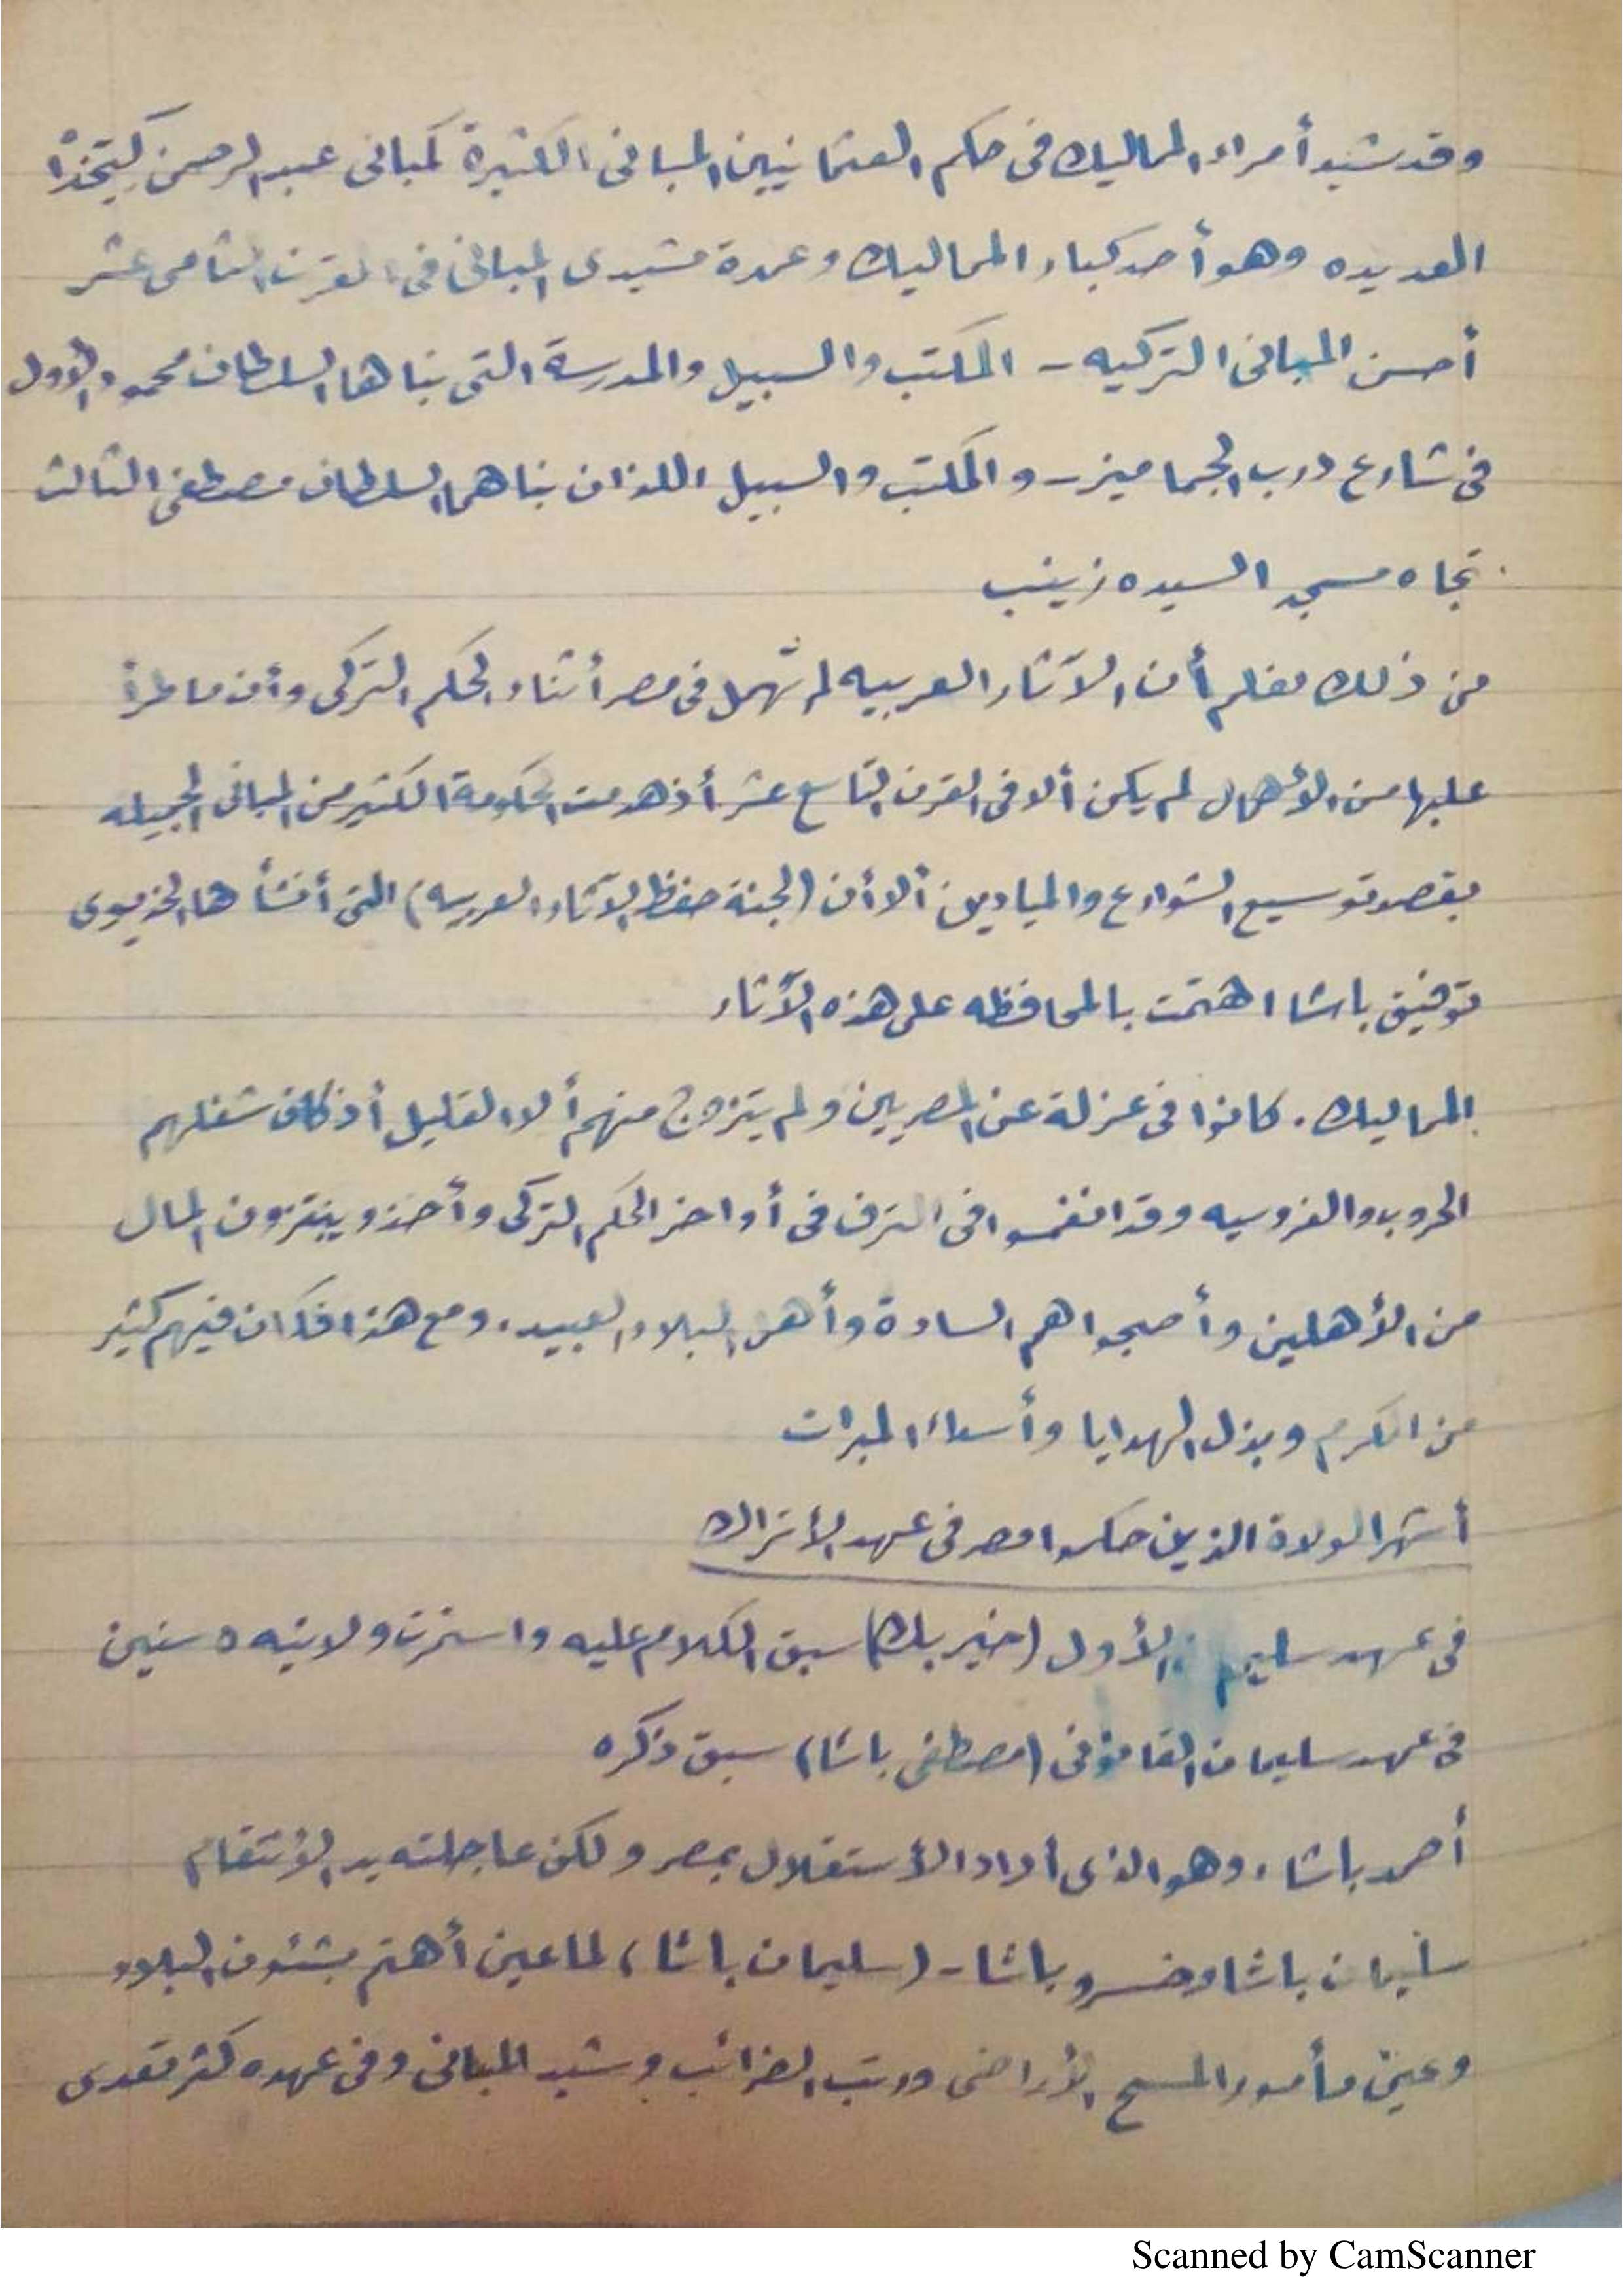 وقد شيد أمراء المماليك فى حكم العثمانيين المبانى الكثيرة كمبانى عبد الرحمن كيتخذا
العديده وهو أحد كبار المماليك وعمدة مشيدى المبانى فى القرن الثامن عشر
أحسن المبانى التركيه - المكتب والسبيل والمدرسة التى بناها السلطان محمود الأول
فى شارع درب الجماميز - والمكتب والسبيل اللذان بناهما السلطان مصطفى الثالث
تجاه مسجد السيده زينب
من ذلك نعلم أن الآثار العربيه لم تهمل فى مصر أثناء الحكم التركى وأن ما طرأ
عليها من الأهمال لم يكن ألا فى القرن التاسع عشر أذ هدمت الحكومة الكثير من المبانى الجميله
بقصد توسيع الشوارع والميادين ألا أن (لجنة حفظ الآثار العربيه) التى أنشأها الخديوى
توفيق باشا اهتمت بالمحافظه على هذه الآثار
المماليك . كانوا فى عزلة عن المصريين ولم يتزوج منهم ألا القليل أذ كان شغلهم
الحروب والفروسيه وقد انغمسوا فى الترف فى أواخر الحكم التركى وأخذو يبتزون المال
من الأهلين وأصبحوا هم السادة وأهل البلاد العبيد . ومع هذا فكان فيهم كثير
من الكرم وبذل الهدايا وأسداء المبرات
أشهر الولاة الذين حكموا مصر فى عهد الأتراك
فى عهد سليم الأول (خير بك) سبق الكلام عليه واستمرت ولايته ٥ سنين
فى عهد سليمان القانونى (مصطفى باشا) سبق ذكره
أحمد باشا . وهو الذى أراد الأستقلال بمصر ولكن عاجلته يد الأنتقام
سليمان باشا وخسرو باشا - (سليمان باشا) لما عين أهتم بشئون البلاد
وعين مأمورا لمسح الأراضى ورتب الضرائب وشيد المبانى وفى عهده كثر تعدى
Scanned by CamScanner